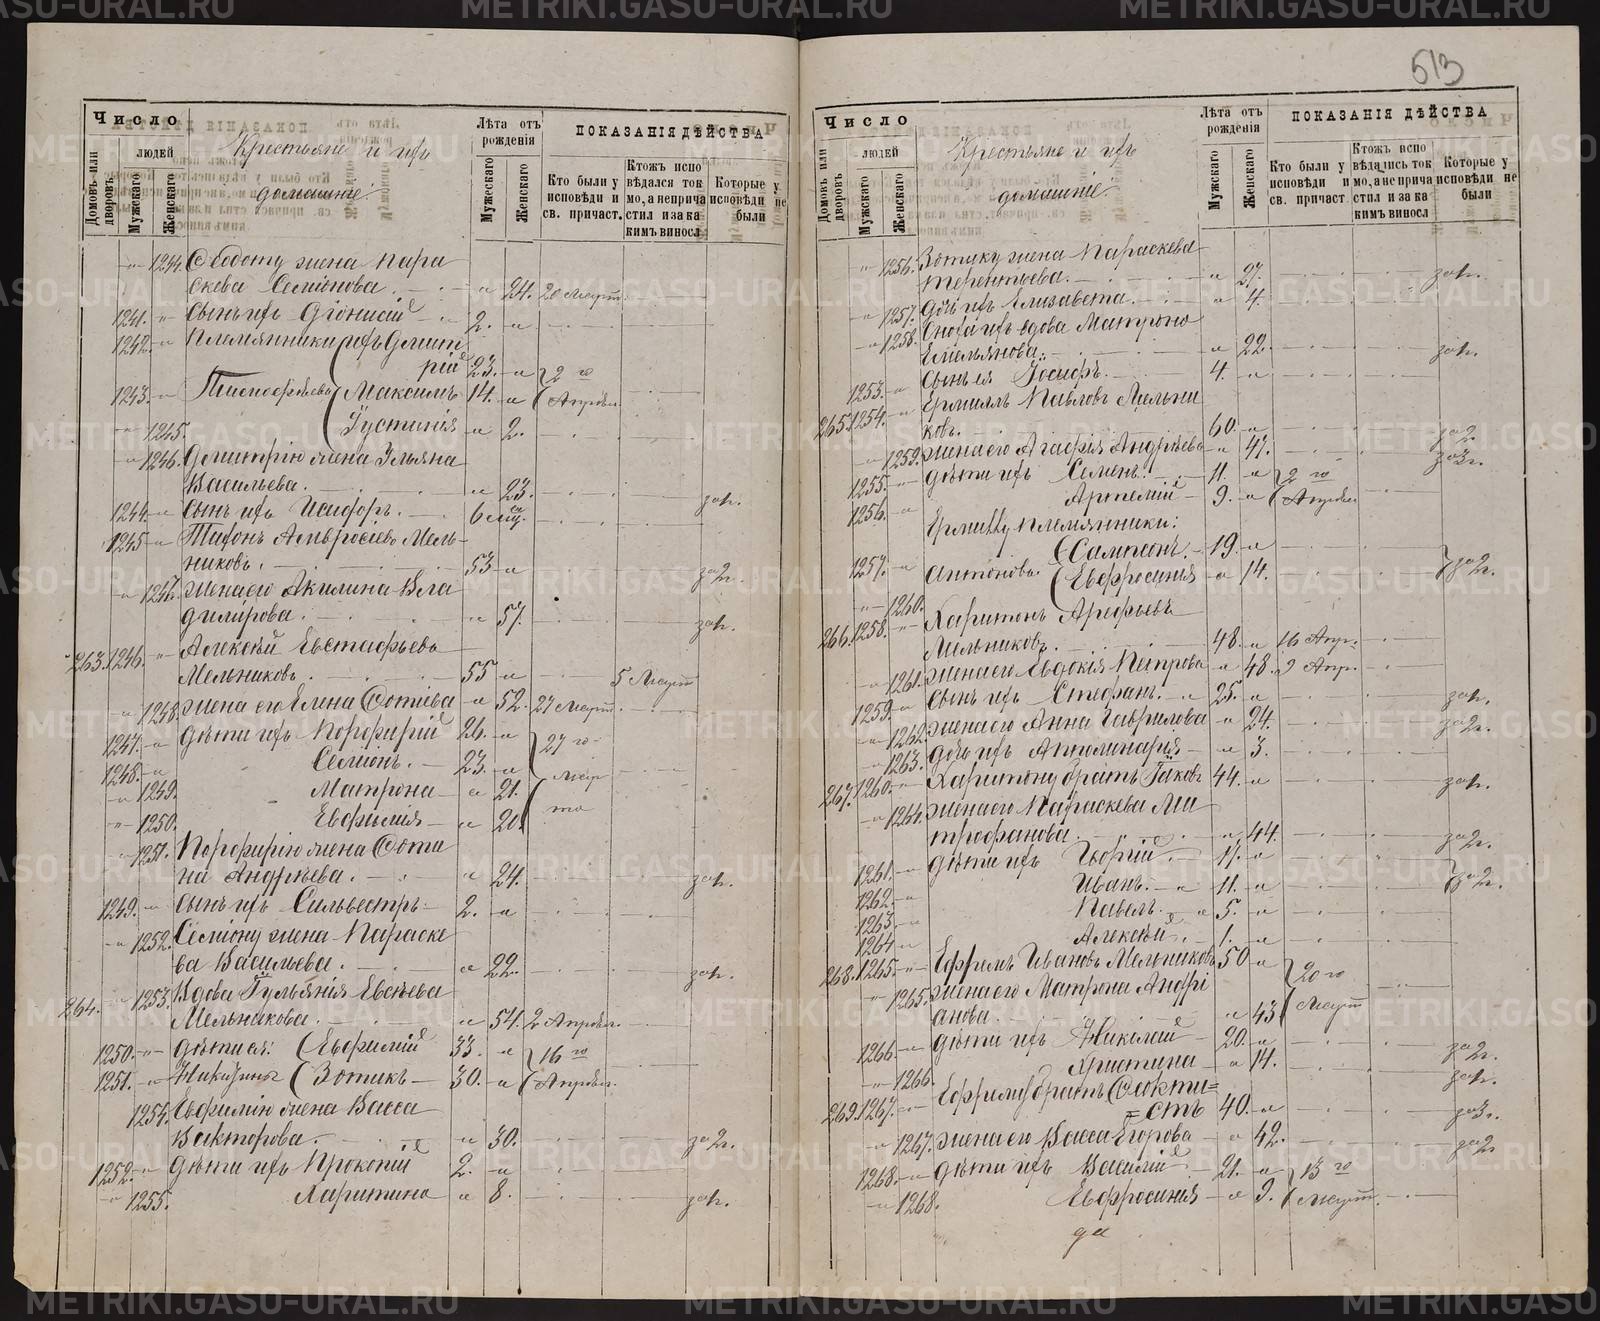 513
Число
людей
Домовъ или дворовъ.
Мужскаго
Женскаго
Крестьяне и ихъ
домашніе.
Лѣта отъ рожденія
Мужескаго
Женскаго
ПОКАЗАНІЯ ДѢЙСТВА
Кто были у исповѣди и св. причаст.
Ктожъ испо вѣдался ток мо, а не прича стил и за ка кимъ винosл
Которые у исповѣди не были
1244. Ѳедоту жена Пара
скева Семіонова. 24. 20 Март.
1241. Сынъ ихъ Діонисій 2.
1242. Племянники ихъ Дмит
рій 23. 2 го
1243. Максимъ 14. Апрѣля
1245. Іустинія 2.
1246. Дмитрію жена Ульяна
Васильева. 23. за 1г.
1244. Сынъ ихъ Исидоръ. 6 мц.
1245 Тихонъ Амвросіевъ Мель-
никовъ. 53 за 2г.
1247. Жена его Акилина Вла
димірова. 57. за 1г.
263. 1246. Алексѣй Евстафьевъ
Мельниковъ. 55 5 Март
1248. Жена его Елена Фотіева 52. 27 Март.
1247. Дѣти ихъ Порфирій 26. 27 го
1248. Семіонъ. 23. Мар
1249. Матрона 21. та
1250. Евфимія 20.
1251. Порфирію жена Фоти
на Андреева. 24. за 1г.
1249. Сынъ ихъ Сильвестръ 2.
1252. Семіону жена Параске
ва Васильева. 22. за 1г.
264. 1253. Вдова Іульянія Евсѣева
Мельникова. 54. 2 Апрѣл.
1250. Дѣти ея: Евфимій 33. 16 го
1251. Никитины Зотикъ 30. Апрѣл.
1254. Евфимію жена Васса
Викторова. 30. за 2г.
1252. Дѣти ихъ Прокопій 2.
1255. Харитина 8. за 1г.
Число
людей
Домовъ или дворовъ.
Мужскаго
Женскаго
Крестьяне и ихъ
домашніе
Лѣта отъ рожденія
Мужскаго
Женскаго
ПОКАЗАНІЯ ДѢЙСТВА
Кто были у исповѣди и св. причаст
Ктожъ испо вѣдались ток мо, а не прича стил и за ка кимъ винosл
Которые у исповѣди не были
1256. Зотику жена Параскева
Терентьева. 27. за 1г.
1257. Дочь ихъ Елизавета. 4.
1258. Сноха ихъ вдова Матрона
Емельянова. 22. за 1г.
1253. Сынъ ея Іосифъ. 4.
265. 1254. Ермилъ Павловъ Мельни
ковъ. 60. за 2
1259. Жена его Агафія Андреева 47. за 3г.
1255. Дѣти ихъ Семенъ. 11. 2 го
1256. Артемій 9. Апрѣля
Ермилу племянники:
1257. Сампсонъ. 19. за 2г.
Антоновы. Евфросинія 14.
1260.
266. 1258. Харитонъ Арефьевъ
Мельниковъ. 48. 16 Апр.
1261. Жена его Евдокія Петрова 48. 2 Апр.
1259. Сынъ ихъ Стефанъ. 25. за 1г.
1262. Жена его Анна Гаврилова 24. за 2г.
1263. Дочь ихъ Аполинарія 3.
267. 1260. Харитону братъ Іаковъ 44. за 1г.
1264. Жена его Параскева Ми
трофанова. 44. за 2г.
1261. Дѣти ихъ Георгій. 17. за 2г.
1262. Иванъ. 11.
1263 Павелъ. 5.
1264 Алексѣй. 1.
268. 1265. Ефремъ Ивановъ Мельниковъ 50 20 го
1265. Жена его Матрона Андрі
анова. 43 Март
1266. Дѣти ихъ Николай 20. за 2г.
1266. Христина 14. за 1г.
269. 1267. Ефрему братъ Ѳеокти=
=стъ 40. за 3г.
1267. Жена его Васса Егорова 42. за 2г
1268. Дѣти ихъ Василій 21. 13 го
1268. Евфросинія 9. Март.
да